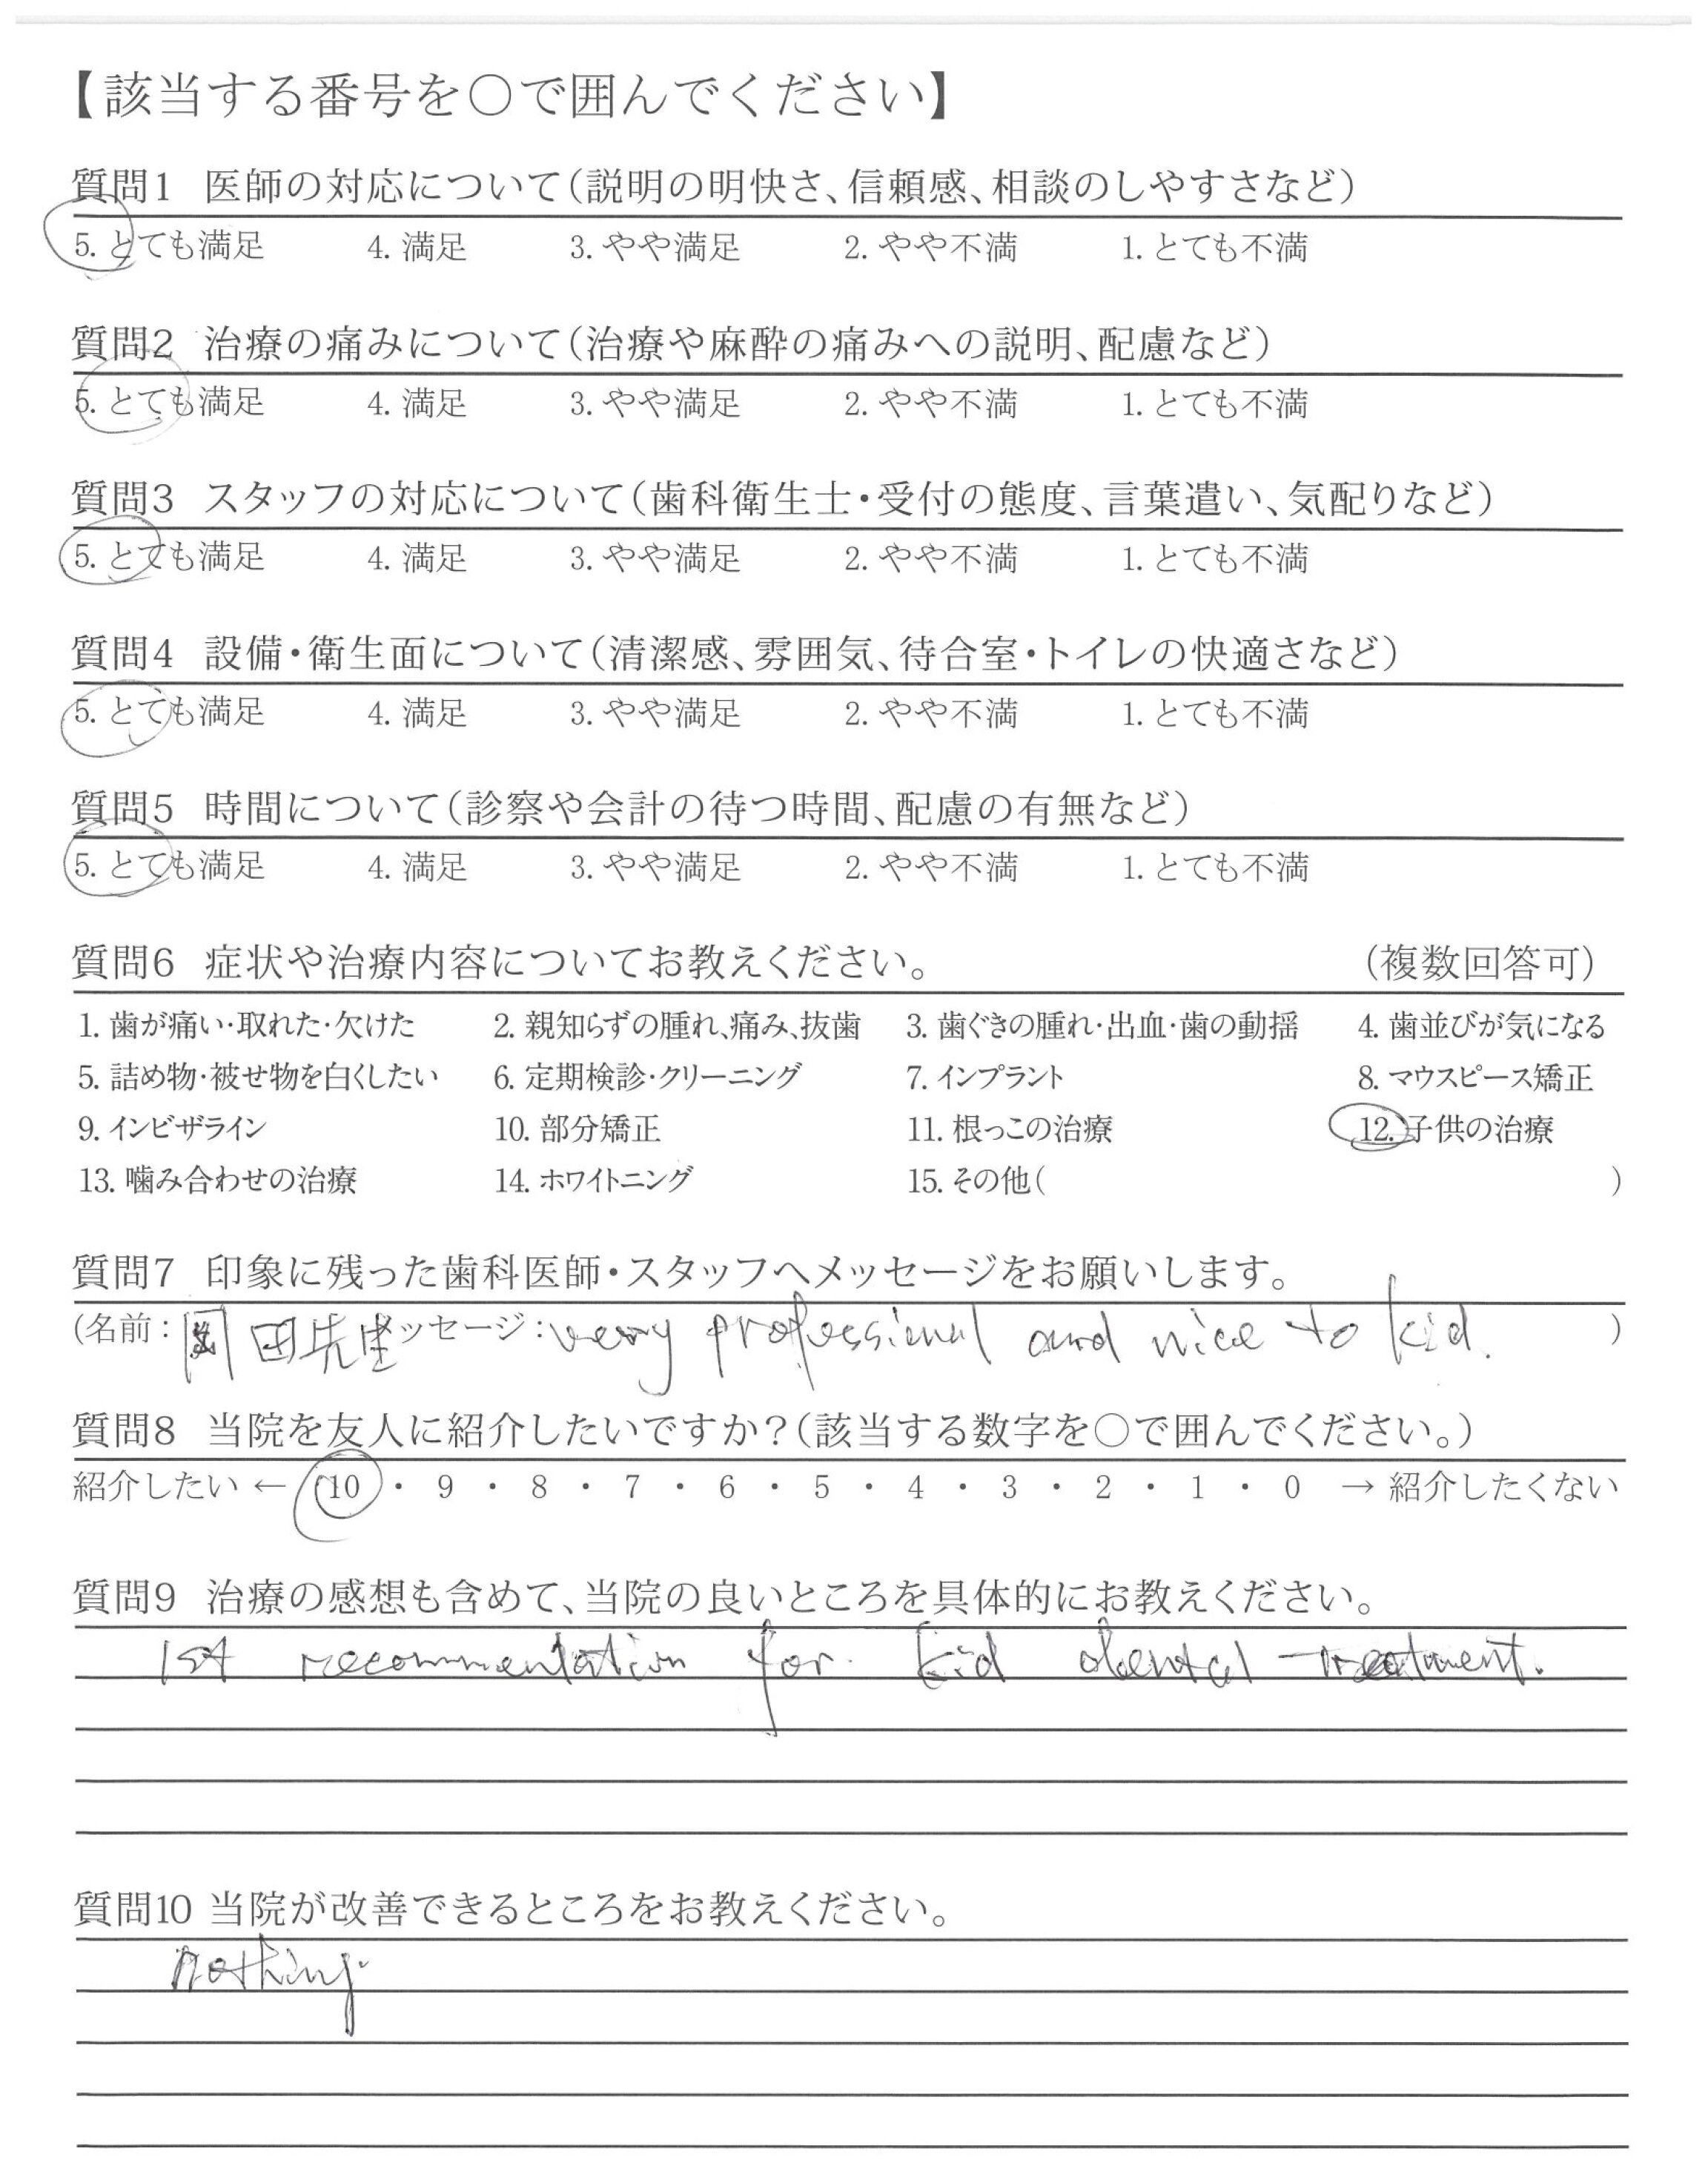 【該当する番号を○で囲んでください】
質問1 医師の対応について(説明の明快さ、信頼感、相談のしやすさなど)
5. とても満足 4. 満足 3. やや満足 2. やや不満 1. とても不満
質問2 治療の痛みについて(治療や麻酔の痛みへの説明、配慮など)
5. とても満足 4. 満足 3. やや満足 2. やや不満 1. とても不満
質問3 スタッフの対応について(歯科衛生士・受付の態度、言葉遣い、気配りなど)
5. とても満足 4. 満足 3. やや満足 2. やや不満 1. とても不満
質問4 設備・衛生面について(清潔感、雰囲気、待合室・トイレの快適さなど)
5. とても満足 4. 満足 3. やや満足 2. やや不満 1. とても不満
質問5 時間について(診察や会計の待つ時間、配慮の有無など)
5. とても満足 4. 満足 3. やや満足 2. やや不満 1. とても不満
質問6 症状や治療内容についてお教えください。 (複数回答可)
1. 歯が痛い・取れた・欠けた 2. 親知らずの腫れ、痛み、抜歯 3. 歯ぐきの腫れ・出血・歯の動揺 4. 歯並びが気になる
5. 詰め物・被せ物を白くしたい 6. 定期検診・クリーニング 7. インプラント 8. マウスピース矯正
9. インビザライン 10. 部分矯正 11. 根っこの治療 12. 子供の治療
13. 噛み合わせの治療 14. ホワイトニング 15. その他( )
質問7 印象に残った歯科医師・スタッフへメッセージをお願いします。
(名前: 田先生 メッセージ: very professional and nice to kid. )
質問8 当院を友人に紹介したいですか?(該当する数字を○で囲んでください。)
紹介したい ← 10 ・ 9 ・ 8 ・ 7 ・ 6 ・ 5 ・ 4 ・ 3 ・ 2 ・ 1 ・ 0 → 紹介したくない
質問9 治療の感想も含めて、当院の良いところを具体的にお教えください。
1st recommentation for kid dental treatment.
質問10 当院が改善できるところをお教えください。
nothing.